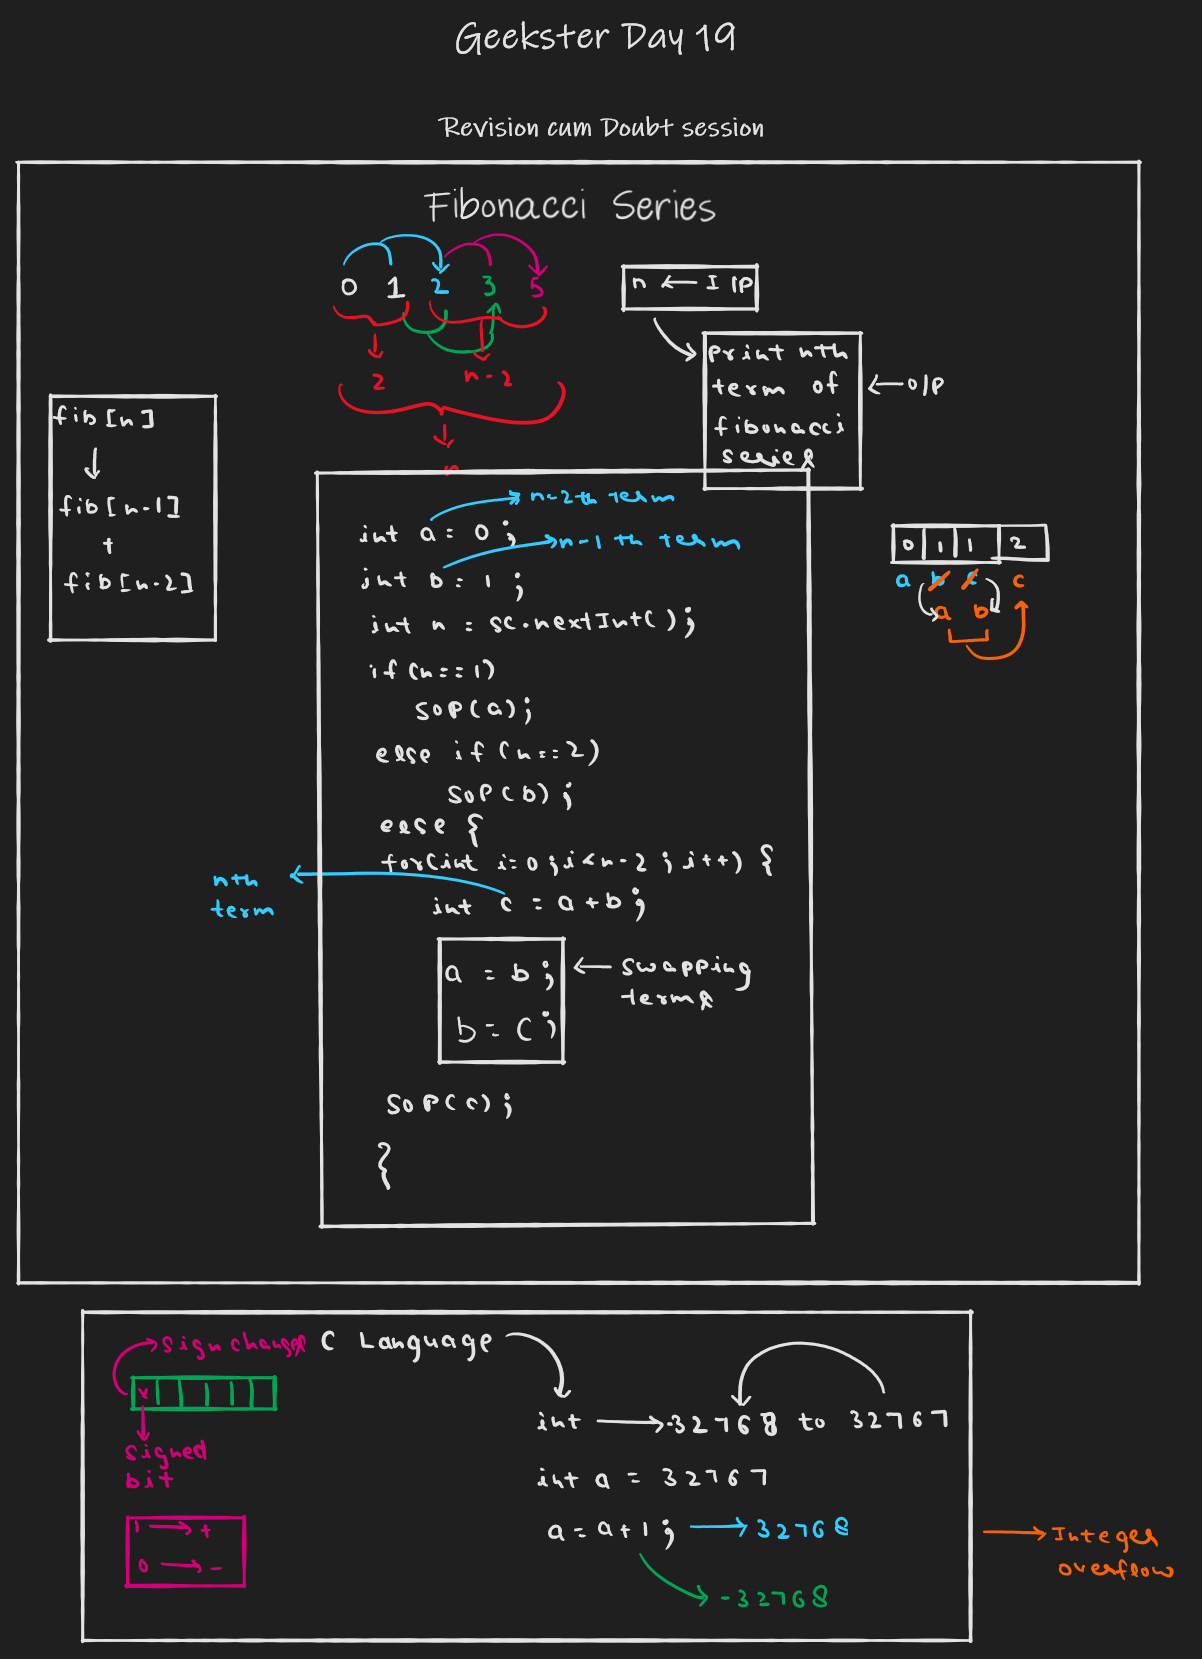 Geekster Day 19
Revision cum Doubt session
Fibonacci Series
0 1 2 3 5
2
n-2
n
n ← I/P
print nth
term of
fibonacci
series
← O/P
fib[n]
↓
fib[n-1]
+
fib[n-2]
int a = 0 ;
→ n-2th term
int b = 1 ;
→ n-1 th term
int n = sc.nextInt();
if (n==1)
SOP(a);
else if (n==2)
SOP(b);
else {
for(int i=0; i<n-2; i++) {
int c = a+b;
nth
term
a = b;
b = c;
← swapping
terms
SOP(c);
{
0 1 1 2
a b c c
a b
C Language
→ sign changes
x
signed
bit
1 → +
0 → -
int → -32768 to 32767
int a = 32767
a = a+1; → 32768
→ -32768
→ Integer
overflow